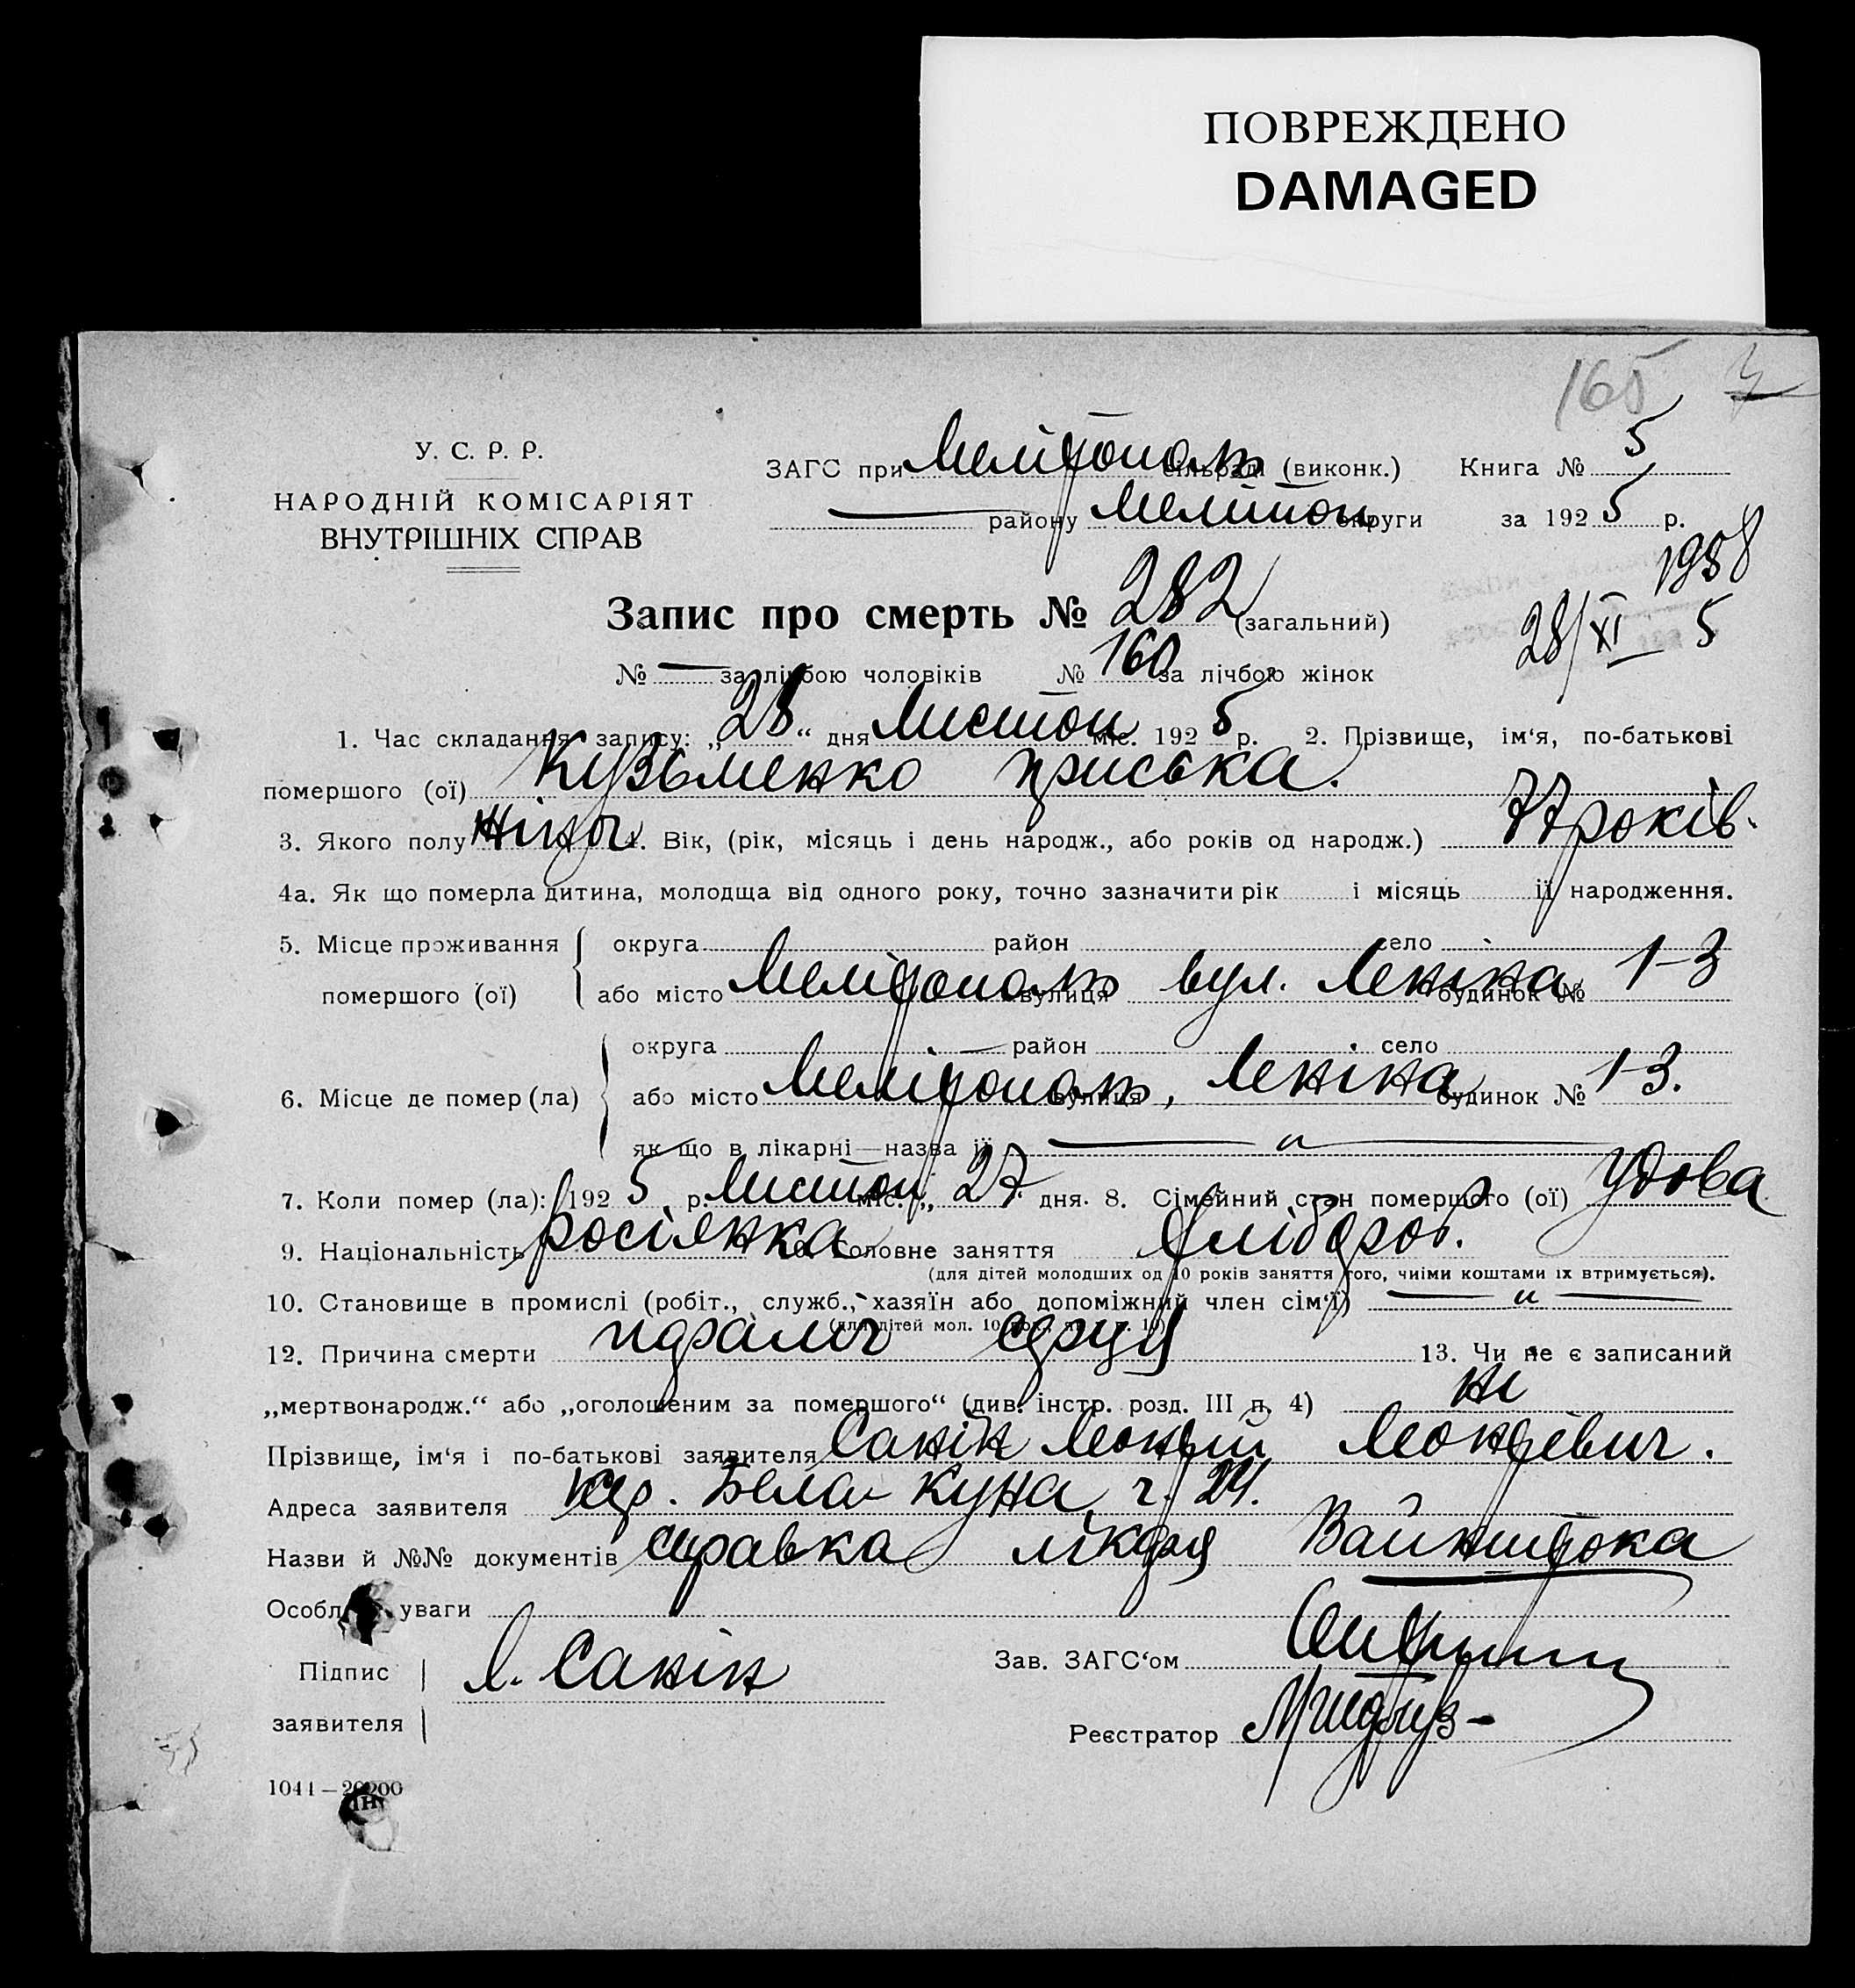 ПОВРЕЖДЕНО
DAMAGED
165
У. С. Р. Р.
НАРОДНІЙ КОМІСАРІЯТ
ВНУТРІШНІХ СПРАВ
ЗАГС при Мелітополь сільраді (виконк.) Книга № 5
— району Мелітоп округи за 1925 р.
1958
Запис про смерть № 282 (загальний)
28/XI 5
№ — за лічбою чоловіків № 160 за лічбою жінок
1. Час складання запису: „28“ дня Листоп міс. 1925 р. 2. Прізвище, ім‘я, по-батькові
помершого (ої) Кузьменко Приська.
3. Якого полу жіноч 4. Вік, (рік, місяць і день народж., або років од народж.) 77 років.
4а. Як що померла дитина, молодща від одного року, точно зазначити рік і місяць її народження.
5. Місце проживання помершого (ої) округа район село
або місто Мелітополь вулиця вул. Леніна будинок № 1-3
6. Місце де помер (ла) округа район село
або місто Мелітополь, вулиця Леніна будинок № 1-3.
як що в лікарні—назва її — „ —
7. Коли помер (ла): 1925 р. Листоп міс. „27“ дня. 8. Сімейний стан помершого (ої) Удова
9. Національність росіянка 10. Головне заняття хлібороб.
(для дітей молодших од 10 років заняття того, чиїми коштами їх втримується).
10. Становище в промислі (робіт., служб., хазяїн або допоміжний член сім‘ї) — „ —
12. Причина смерти параліч серця 13. Чи не є записаний
„мертвонародж.“ або „оголошеним за помершого“ (див. інстр. розд. III п. 4) ні
Прізвище, ім‘я і по-батькові заявителя Санін Леонтій Леонтіевич.
Адреса заявителя Бела Куна, ч. 24.
Назви й №№ документів справка лікаря Вайнштока
Особл уваги
Підпис заявителя Л. Санін
Зав. ЗАГС‘ом
Реєстратор
1041—20200